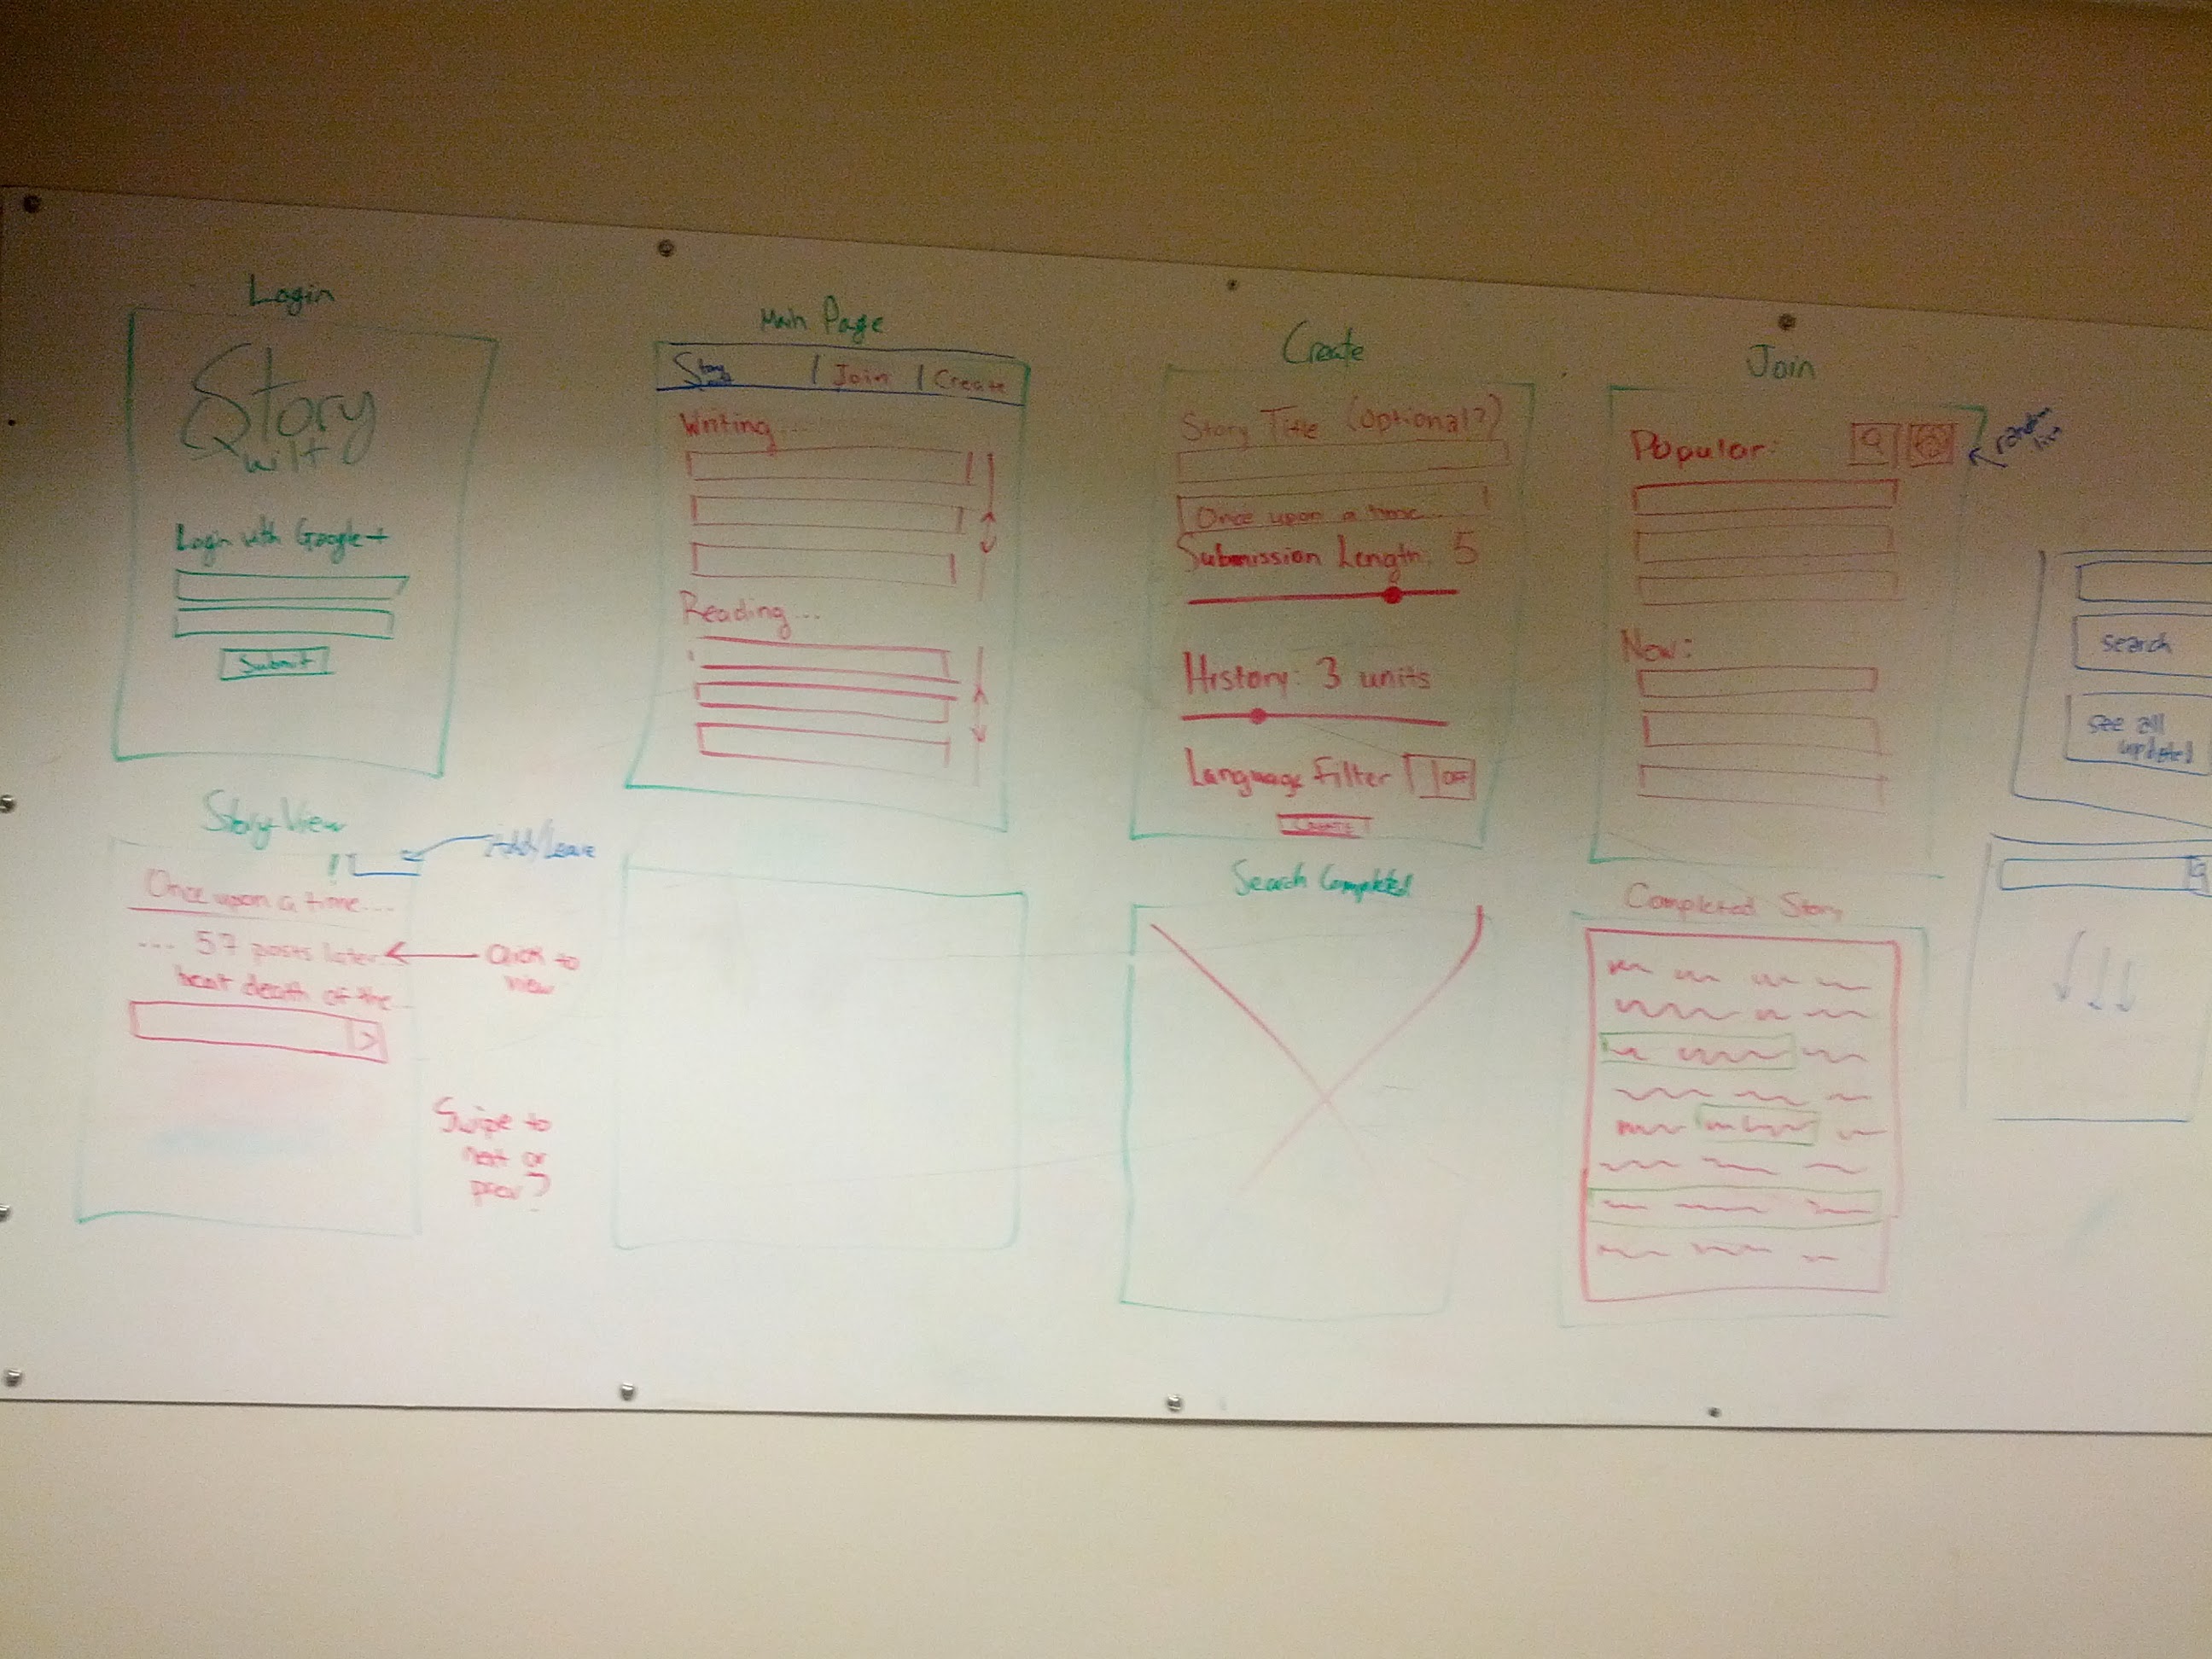 Login
Story
wilt
Login with Google+
Submit
Main Page
Story | Join | Create
Writing...
Reading...
Create
Story Title (optional?)
Once upon a time...
Submission Length: 5
History: 3 units
Language Filter OFF
Create
Join
Popular:
New:
search
see all
updated
Story View
Add/Leave
Once upon a time...
... 57 posts later
Click to
view
heat death of the...
>
Swipe to
next or
prev?
Search Completed
Completed Story